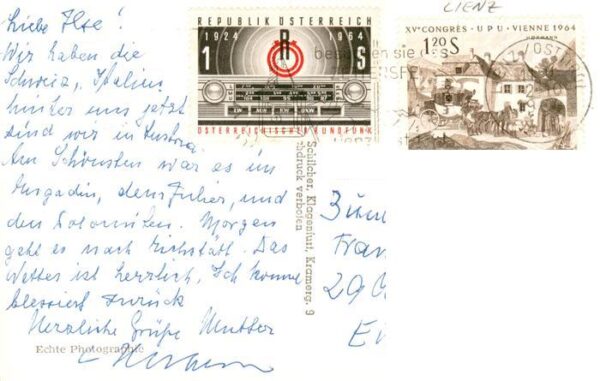 Liebe Ilse!
Wir haben die
Schweiz, Italien
hinter uns jetzt
sind wir in
Am Schönsten war es im
Engadin, dem Julier, und
den Dolomiten. Morgen
geht es nach Eichstätt. Das
Wetter ist herrlich. Ich komme
zurück
Herzliche Grüße Mutter
Echte Photographie
Schilcher, Klagenfurt, Kramerg. 9
druck verboten
REPUBLIK ÖSTERREICH
1924 R 1964
1 S
LW MW KW UKW
ÖSTERREICHISCHER RUNDFUNK
LIENZ
XV CONGRÈS · UPU · VIENNE 1964
1.20 S
Fran
29